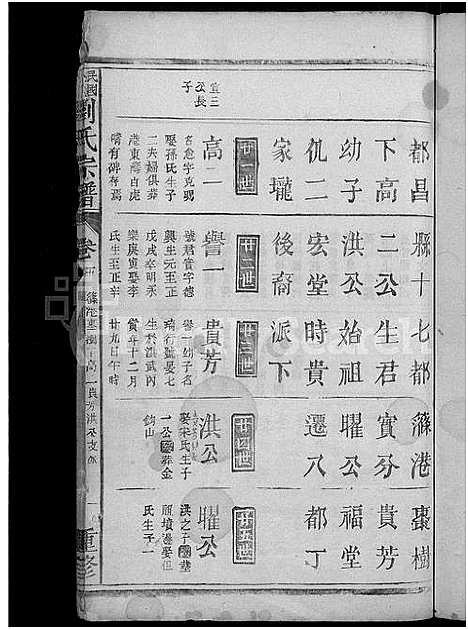 都昌縣十七都篠港棗樹
下高二公生君實分貴芳
幼子洪公始祖曜公福堂
仉一宏堂時貴遷八都丁
家壠後裔派下
廿一世
廿二世
廿三世
廿四世
廿五世
宜三
公長
子
高二
名愈字克弼
娶孫氏生子
二夫婦俱葬
港東灣白虎
嘴有碑存焉
譽一
號君實字德
興生元至正
戊戌卒明永
樂庚寅娶李
氏生至正辛
貴芳
譽一幼子名
瑞行號晏七
生於洪武丙
寅年十二月
廿九日午時
洪公
娶宋氏生子
一公葬金
鈎山
曜公
洪之子
祖墳邊娶但
氏生子一
民國
劉氏宗譜
卷
重修